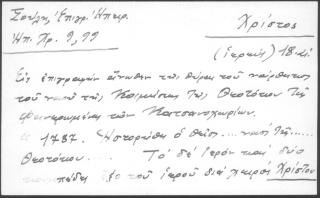 Σούλη, Ἐπιγρ. Ἠπειρ.
Ἠπ. Χρ. 9, 99
Χρίστος
(ἱερεύς) 18 αἰ.
Εἰς ἐπιγραφήν ἄνωθεν τῆς θύρας τοῦ νάρθηκος
τοῦ ναοῦ τῆς Κοιμήσεως τῆς Θεοτόκου τῆς
Φανερωμένης τῶν Κατσανοχωρίων.
" 1787. Ἡστορήθη ὁ θεῖος .... ναός τῆς ....
Θεοτόκου .... Τό δέ ἱερόν καί δύο
ἔξο τοῦ ἱεροῦ διά χειρός Χρίστου